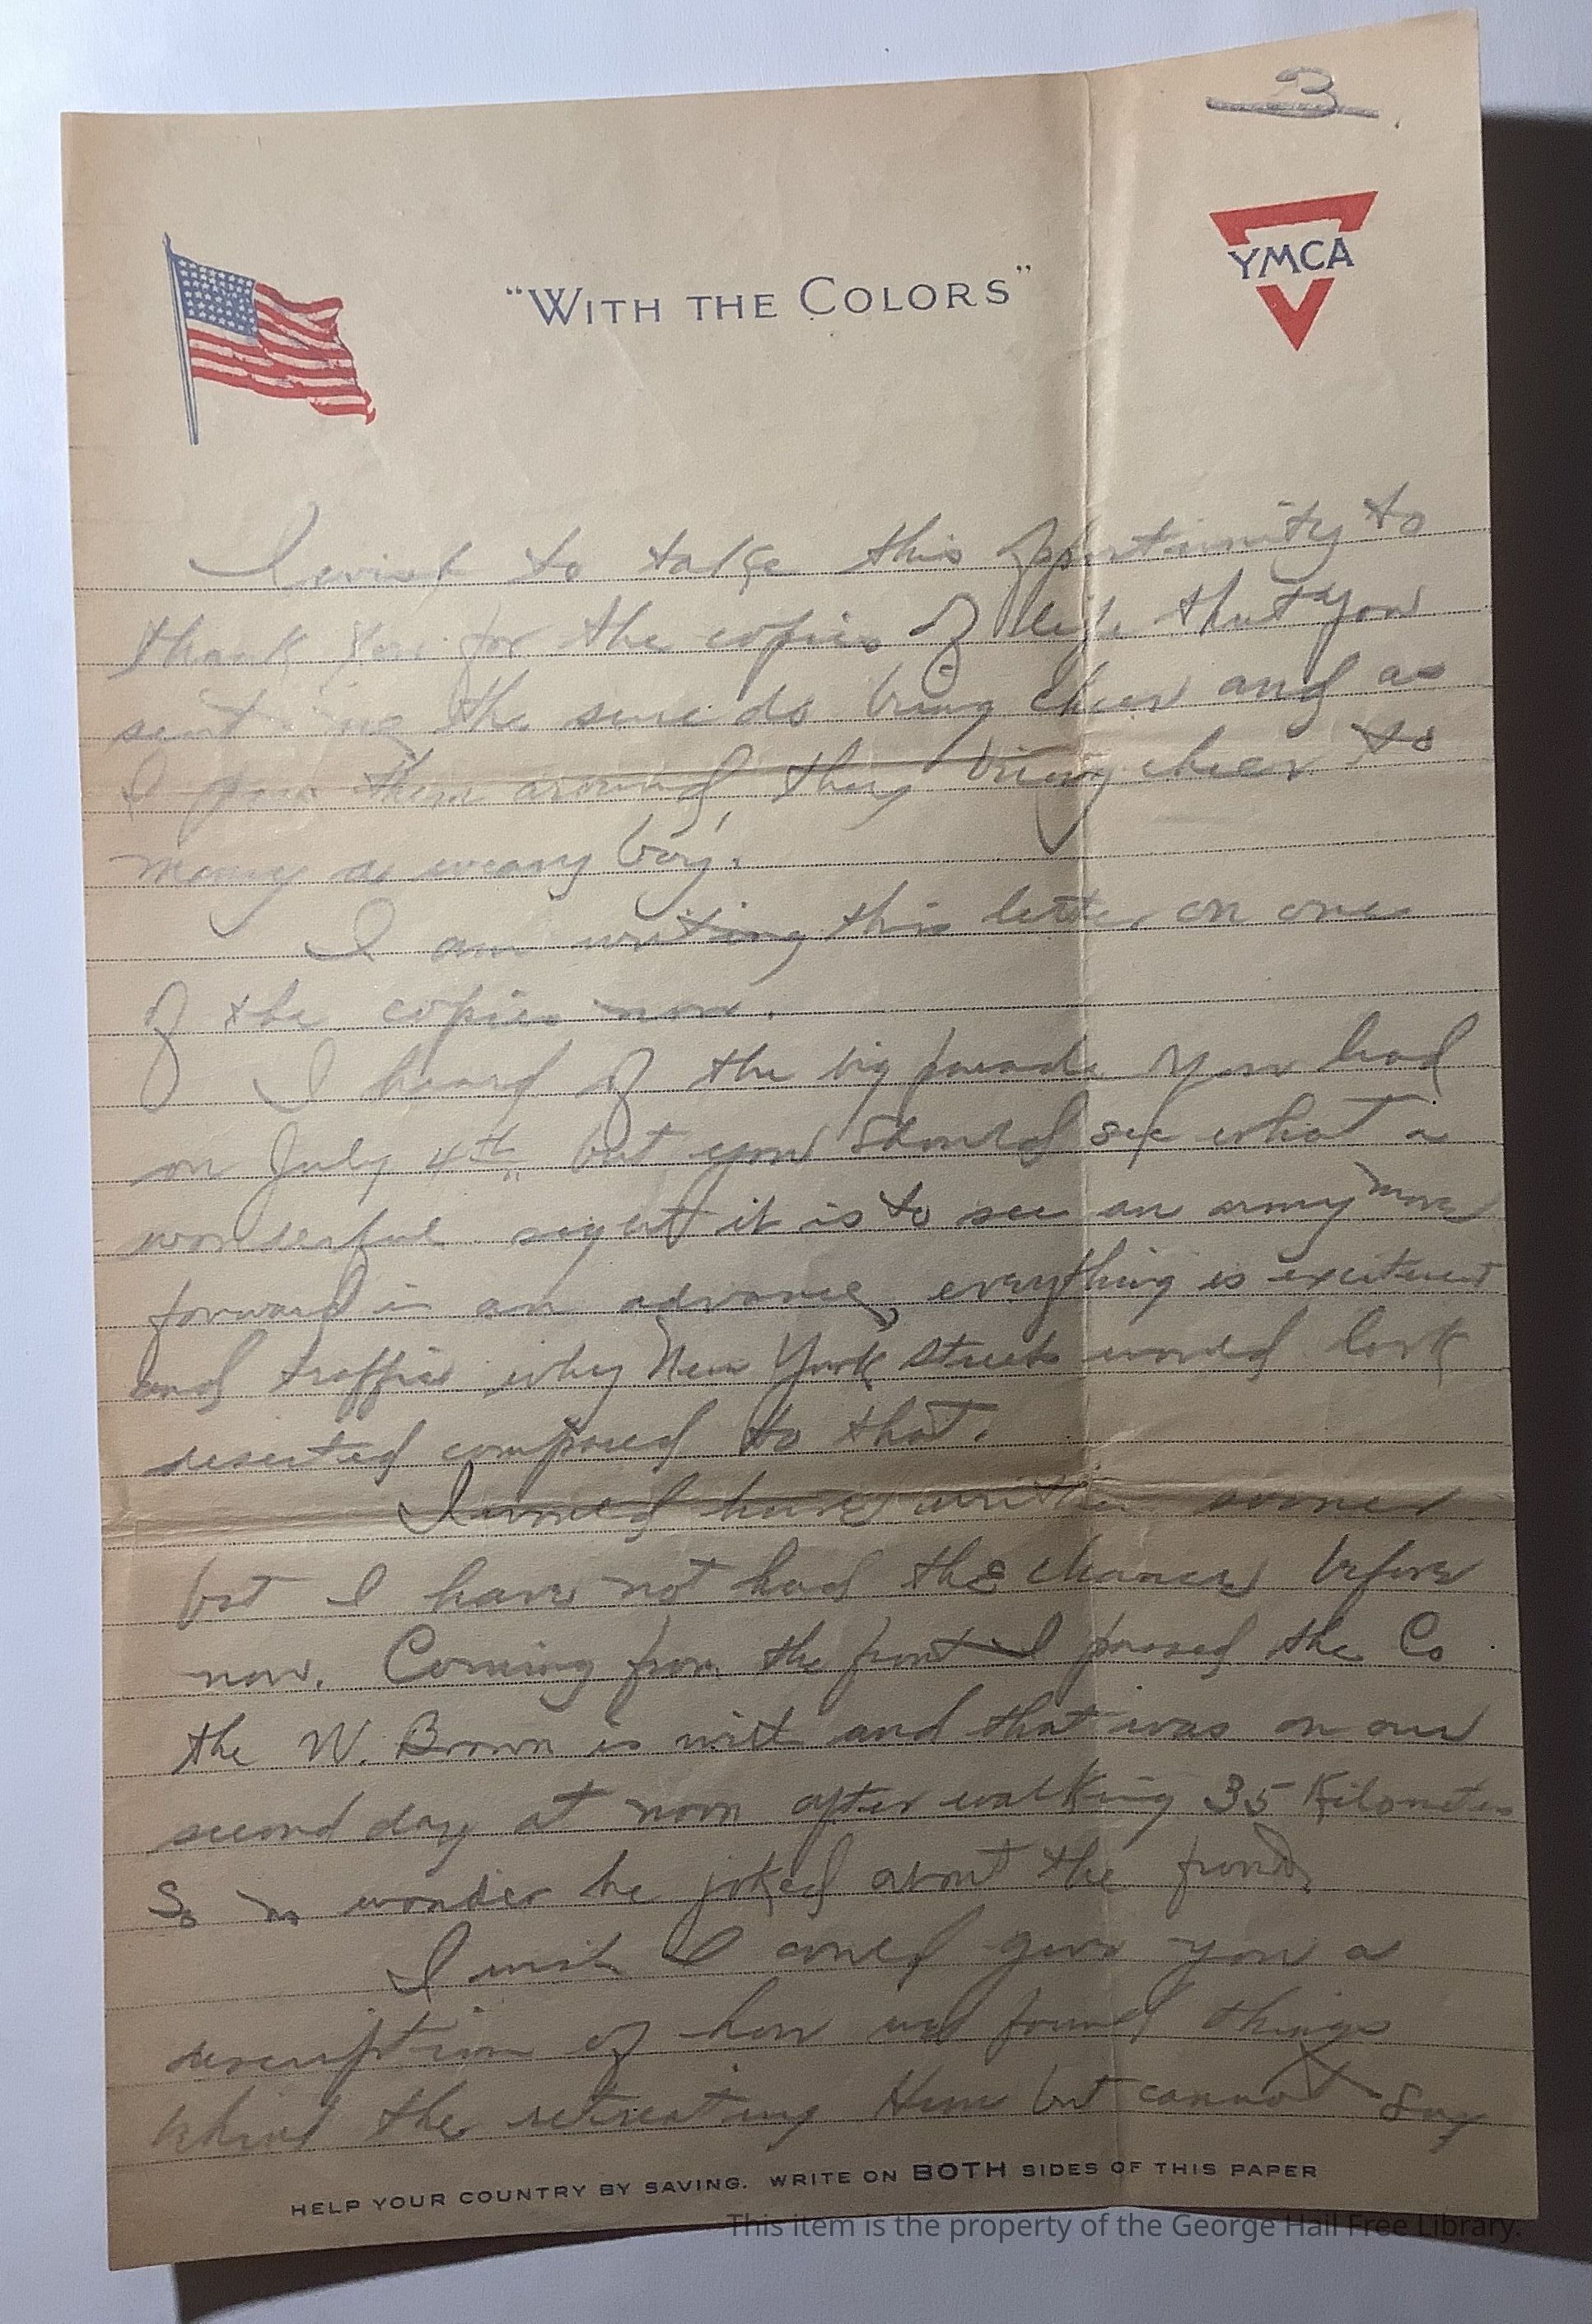 3
"WITH THE COLORS"
YMCA
I wish to take this opportunity to
thank you for the copies of life that you
sent me they sure do bring cheer and as
I pass them around, they bring cheer to
many a weary boy.
I am writing this letter on one
of the copies now.
I heard of the big parade you had
on July 4th but you should see what a
wonderful sight it is to see an army move
forward in an advance, everything is excitement
and traffic why New York streets would look
deserted compared to that.
I would have written sooner
but I have not had the chance before
now. Coming from the front I passed the Co
the W. Brown is with and that was on our
second day at noon after walking 35 Kilometers
So no wonder he joked about the front
I wish I could give you a
description of how we found things
behind the retreating Hun but cannot say
HELP YOUR COUNTRY BY SAVING. WRITE ON BOTH SIDES OF THIS PAPER
This item is the property of the George Hail Free Library.